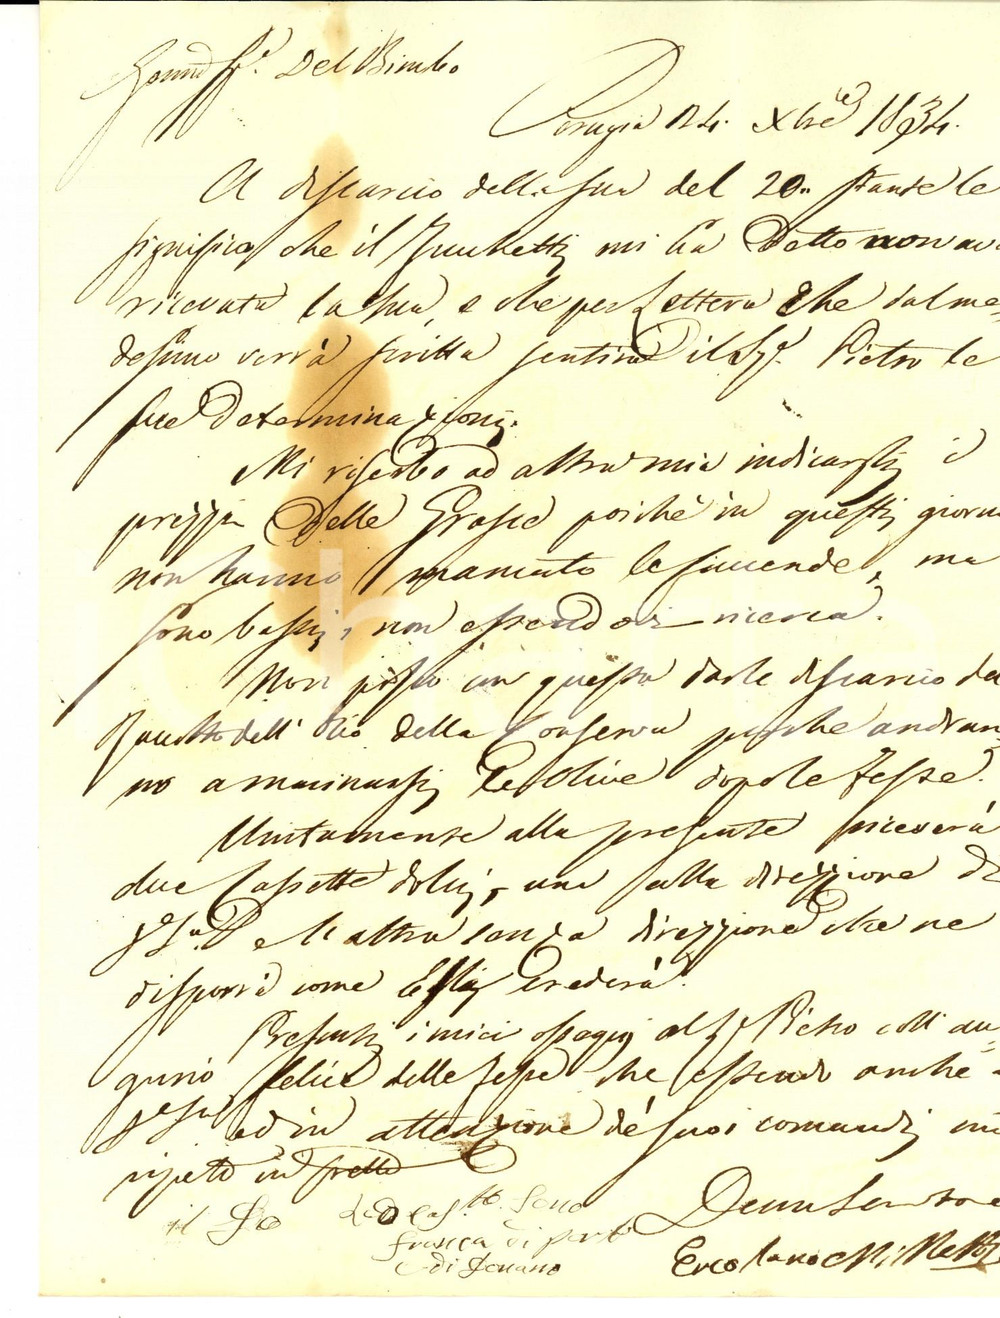 Sig.r Del Bimbo
Perugia 24. Xbre 1834.
A discarico della sua del 20. stante le
significo che il Zucchetti mi ha detto non av
ricevuta la sua, e che per Lettera che dal me=
desimo verrà scritta sentirà il Sig.r Pietro le
sue determinazioni.
Mi riserbo ad altra mia indicarli i
prezzi delle Grascie poichè in questi giorni
non hanno le faccende, ma
sono bassi, non essendovi ricerca.
Non posso in questa darle discarico del
dell'Olio della Conserva perche andran=
no a macinarsi le Olive dopo le Feste.
Unitamente alla presente riceverà
due Cassette dolci, una colla direzzione di
e l'altra senza direzzione che ne
disporrà come Ella crederà.
Presenti i miei ossequi al Sig. Pietro coll'au=
gurio felice delle feste che essendo anche a
ed in attenzione de' suoi comandi mi
ripeto in fretta
Devmo Servitore
Ercolano
il
Le Cass.tte sono
franca di porto
e di Dogana